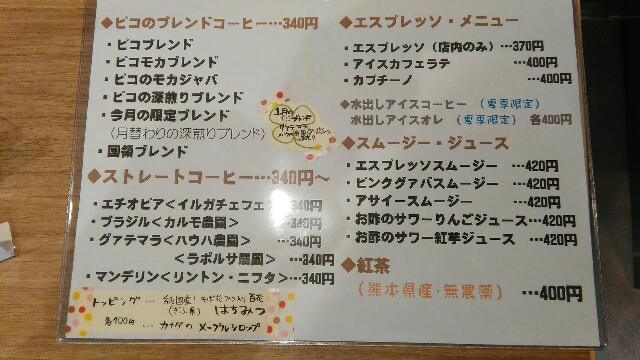 ◆ピコのブレンドコーヒー…340円
・ピコブレンド
・ピコモカブレンド
・ピコのモカジャバ
・ピコの深煎りブレンド
・今月の限定ブレンド
(月替わりの深煎りブレンド)
・国領ブレンド
◆ストレートコーヒー…340円～
・エチオピア<イルガチェフェ 340円
・ブラジル<カルモ農園> …340円
・グァテマラ<ハウハ農園> …340円
<ラボルサ農園> …340円
・マンデリン<リントン・ニフタ>…340円
トッピング… 純国産! そば花 百花
(ぎふ県) はちみつ
各100円 … カナダの メープルシロップ
◆エスプレッソ・メニュー
・エスプレッソ(店内のみ)…370円
・アイスカフェラテ …400円
・カプチーノ …400円
◆水出しアイスコーヒー (夏季限定)
水出しアイスオレ (夏季限定) 各400円
◆スムージー・ジュース
・エスプレッソスムージー …420円
・ピンクグァバスムージー …420円
・アサイースムージー …420円
・お酢のサワーりんごジュース…420円
・お酢のサワー紅芋ジュース …420円
◆紅茶
(熊本県産・無農薬) …400円